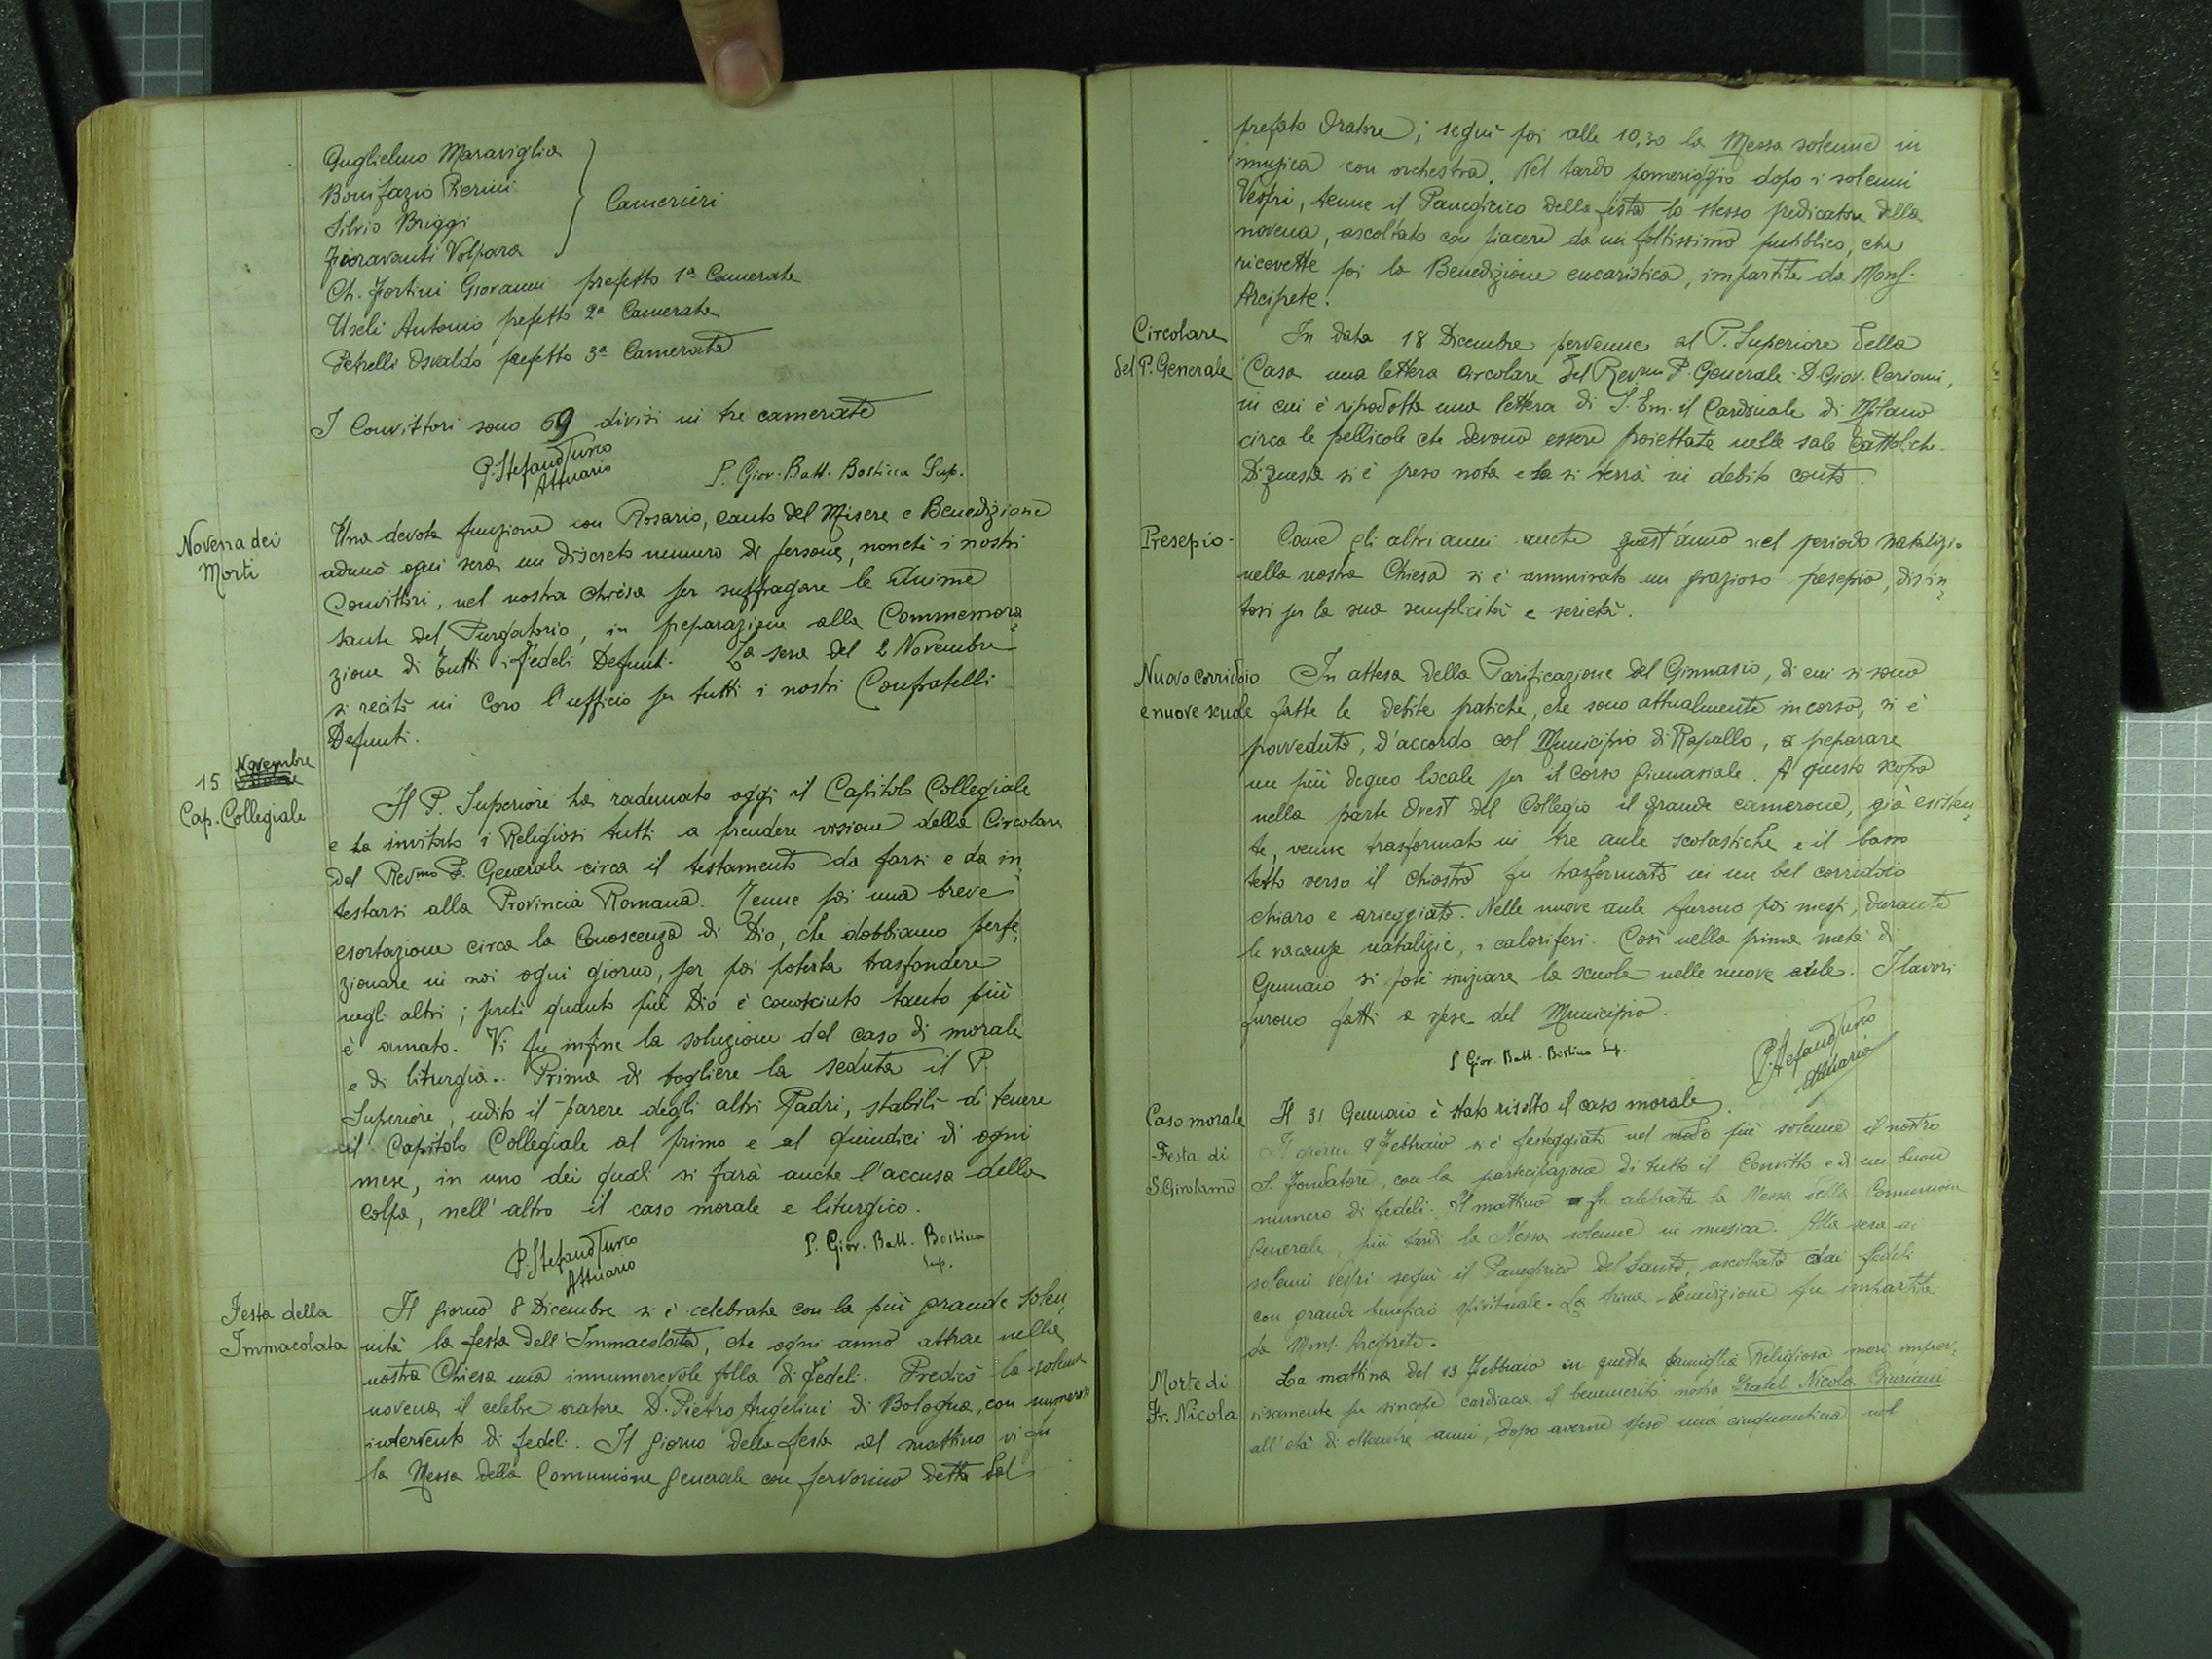 Guglielmo Maraviglia
Bonifazio Pierini
Silvio Briggi
Fioravanti Volpara
Camerieri
Ch. Fortini Giovanni prefetto 1ª Camerata
Useli Antonio prefetto 2ª Camerata
Petrelli Osvaldo prefetto 3ª Camerata
I Convittori sono 69 divisi in tre camerate
P. Stefano Turco
Attuario
P. Giov. Batt. Bosticca Sup.
Novena dei
Morti
Una devota funzione con Rosario, canto del Misere e Benedizione
adunò ogni sera un discreto numero di persone, nonchè i nostri
Convittori, nel nostra chiesa per suffragare le Anime
sante del Purgatorio, in preparazione alla Commemora=
zione di tutti i fedeli Defunti. La sera del 2 Novembre
si recitò in Coro l'ufficio per tutti i nostri Confratelli
Defunti.
15 Novembre
Cap. Collegiale
Il P. Superiore ha radunato oggi il Capitolo Collegiale
e ha invitato i Religiosi tutti a prendere visione della Circolare
del Revmo P. Generale circa il testamento da farsi e da in=
testarsi alla Provincia Romana. Tenne poi una breve
esortazione circa la Conoscenza di Dio, che dobbiamo perfe=
zionare in noi ogni giorno, per poi poterla trasfondere
negli altri; perchè quanto più Dio è conosciuto tanto più
è amato. Vi fu infine la soluzione del caso di morale
e di liturgia.. Prima di togliere la seduta il P.
Superiore, udito il parere degli altri Padri, stabilì di tenere
il Capitolo Collegiale al primo e al quindici di ogni
mese, in uno dei quali si farà anche l'accusa della
colpa, nell'altro il caso morale e liturgico.
P. Stefano Turco
Attuario
P. Giov. Batt. Bosticca
Sup.
Festa della
Immacolata
Il giorno 8 Dicembre si è celebrata con la più grande solen=
nità la festa dell'Immacolata, che ogni anno attrae nella
nostra Chiesa una innumerevole folla di fedeli. Predicò la solenne
novena il celebre oratore D. Pietro Angelini di Bologna, con numeroso
intervento di fedeli. Il giorno della festa al mattino vi fu
la Messa della Comunione generale con fervorino detta dal
prefato Oratore; seguì poi alle 10,30 la Messa solenne in
musica con orchestra. Nel tardo pomeriggio dopo i solenni
Vespri, tenne il Panegirico della festa lo stesso predicatore della
novena, ascoltato con piacere da un foltissimo pubblico, che
ricevette poi la Benedizione eucaristica, impartita da Mons.
Arciprete.
Circolare
del P. Generale
In data 18 Dicembre pervenne al P. Superiore della
Casa una lettera circolare del Rev.mo P. Generale D. Giov. Ceriani,
in cui è riprodotta una lettera di S. Em. il Cardinale di Milano
circa le pellicole che devono essere proiettate nelle sale Cattoliche.
Di questa si è preso nota e la si terrà in debito conto.
Presepio.
Come gli altri anni anche quest'anno nel periodo natalizio
nella nostra Chiesa si è ammirato un grazioso presepio, distin=
tosi per la sua semplicità e serietà.
Nuovo corridoio
e nuove scuole
In attesa della Parificazione del Ginnasio, di cui si sono
fatte le debite pratiche, che sono attualmente in corso, si è
provveduto, d'accordo col Municipio di Rapallo, a preparare
un più degno locale per il corso Ginnasiale. A questo scopo
nella parte Ovest del Collegio il grande camerone, già esisten=
te, venne trasformato in tre aule scolastiche e il basso
tetto verso il chiostro fu trasformato in un bel corridoio
chiaro e arieggiato. Nelle nuove aule furono poi messi, durante
le vacanze natalizie, i caloriferi. Così nella prima metà di
Gennaio si potè iniziare la scuola nelle nuove aule. I lavori
furono fatti a spese del Municipio.
P. Giov. Batt. Bosticca Sup.
P. Stefano Turco
Attuario
Caso morale
Il 31 Gennaio è stato risolto il caso morale.
Festa di
S. Girolamo
Il giorno 9 Febbraio si è festeggiato nel modo più solenne il nostro
S. Fondatore, con la partecipazione di tutto il Convitto e di un buon
numero di fedeli. Il mattino fu celebrata la Messa della Comunione
Generale, più tardi la Messa solenne in musica. Alla sera ai
solenni Vespri seguì il Panegirico del Santo, ascoltato dai fedeli
con grande beneficio spirituale. La trina benedizione fu impartita
da Mons. Arciprete.
Morte di
Fr. Nicola
La mattina del 13 Febbraio in questa famiglia Religiosa morì improv=
visamente per sincope cardiaca il benemerito nostro Fratel Nicola
all'età di ottantre anni, dopo averne speso una cinquantina nel